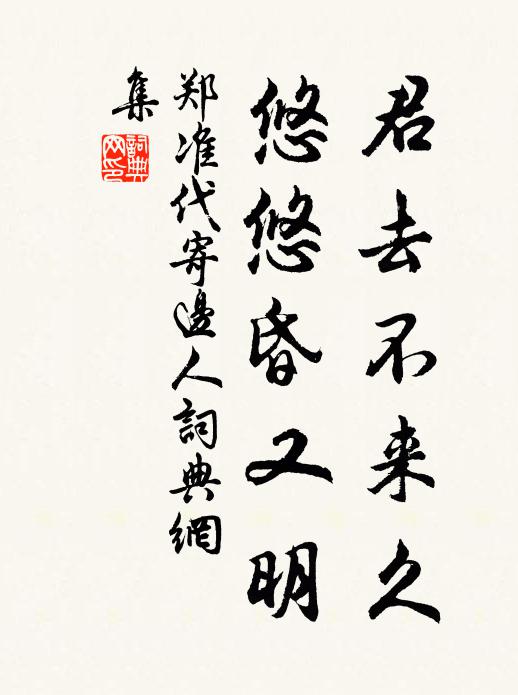 君去不来久
悠悠昏又明
郑准代寄邊人詞典網
集
詞典网印